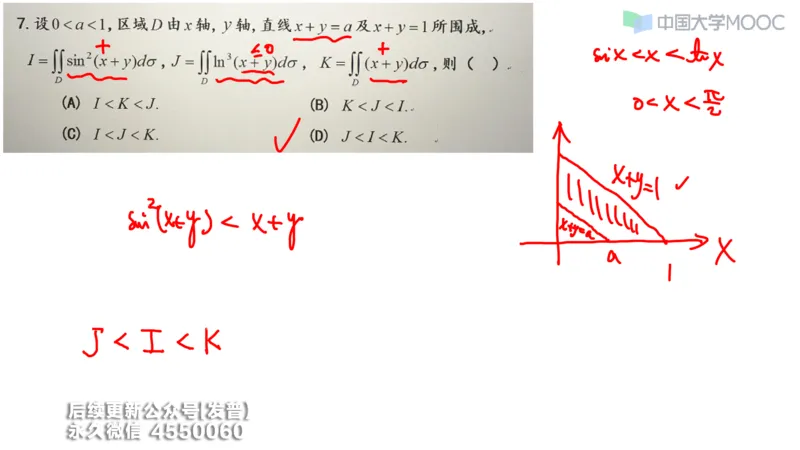 中国大学MOOC
7. 设0<a<1,区域D由x轴,y轴,直线x+y=a及x+y=1所围成,
+ ≤0 +
I=∬_D sin²(x+y)dσ, J=∬_D ln³(x+y)dσ, K=∬_D (x+y)dσ,则( )
(A) I<K<J. (B) K<J<I.
(C) I<J<K. (D) J<I<K.
sin x < x < tan x
0 < x < π/2
x+y=1
x+y=a
a 1 X
sin²(x+y) < x+y
J < I < K
后续更新公众号(发普)
永久微信 4550060